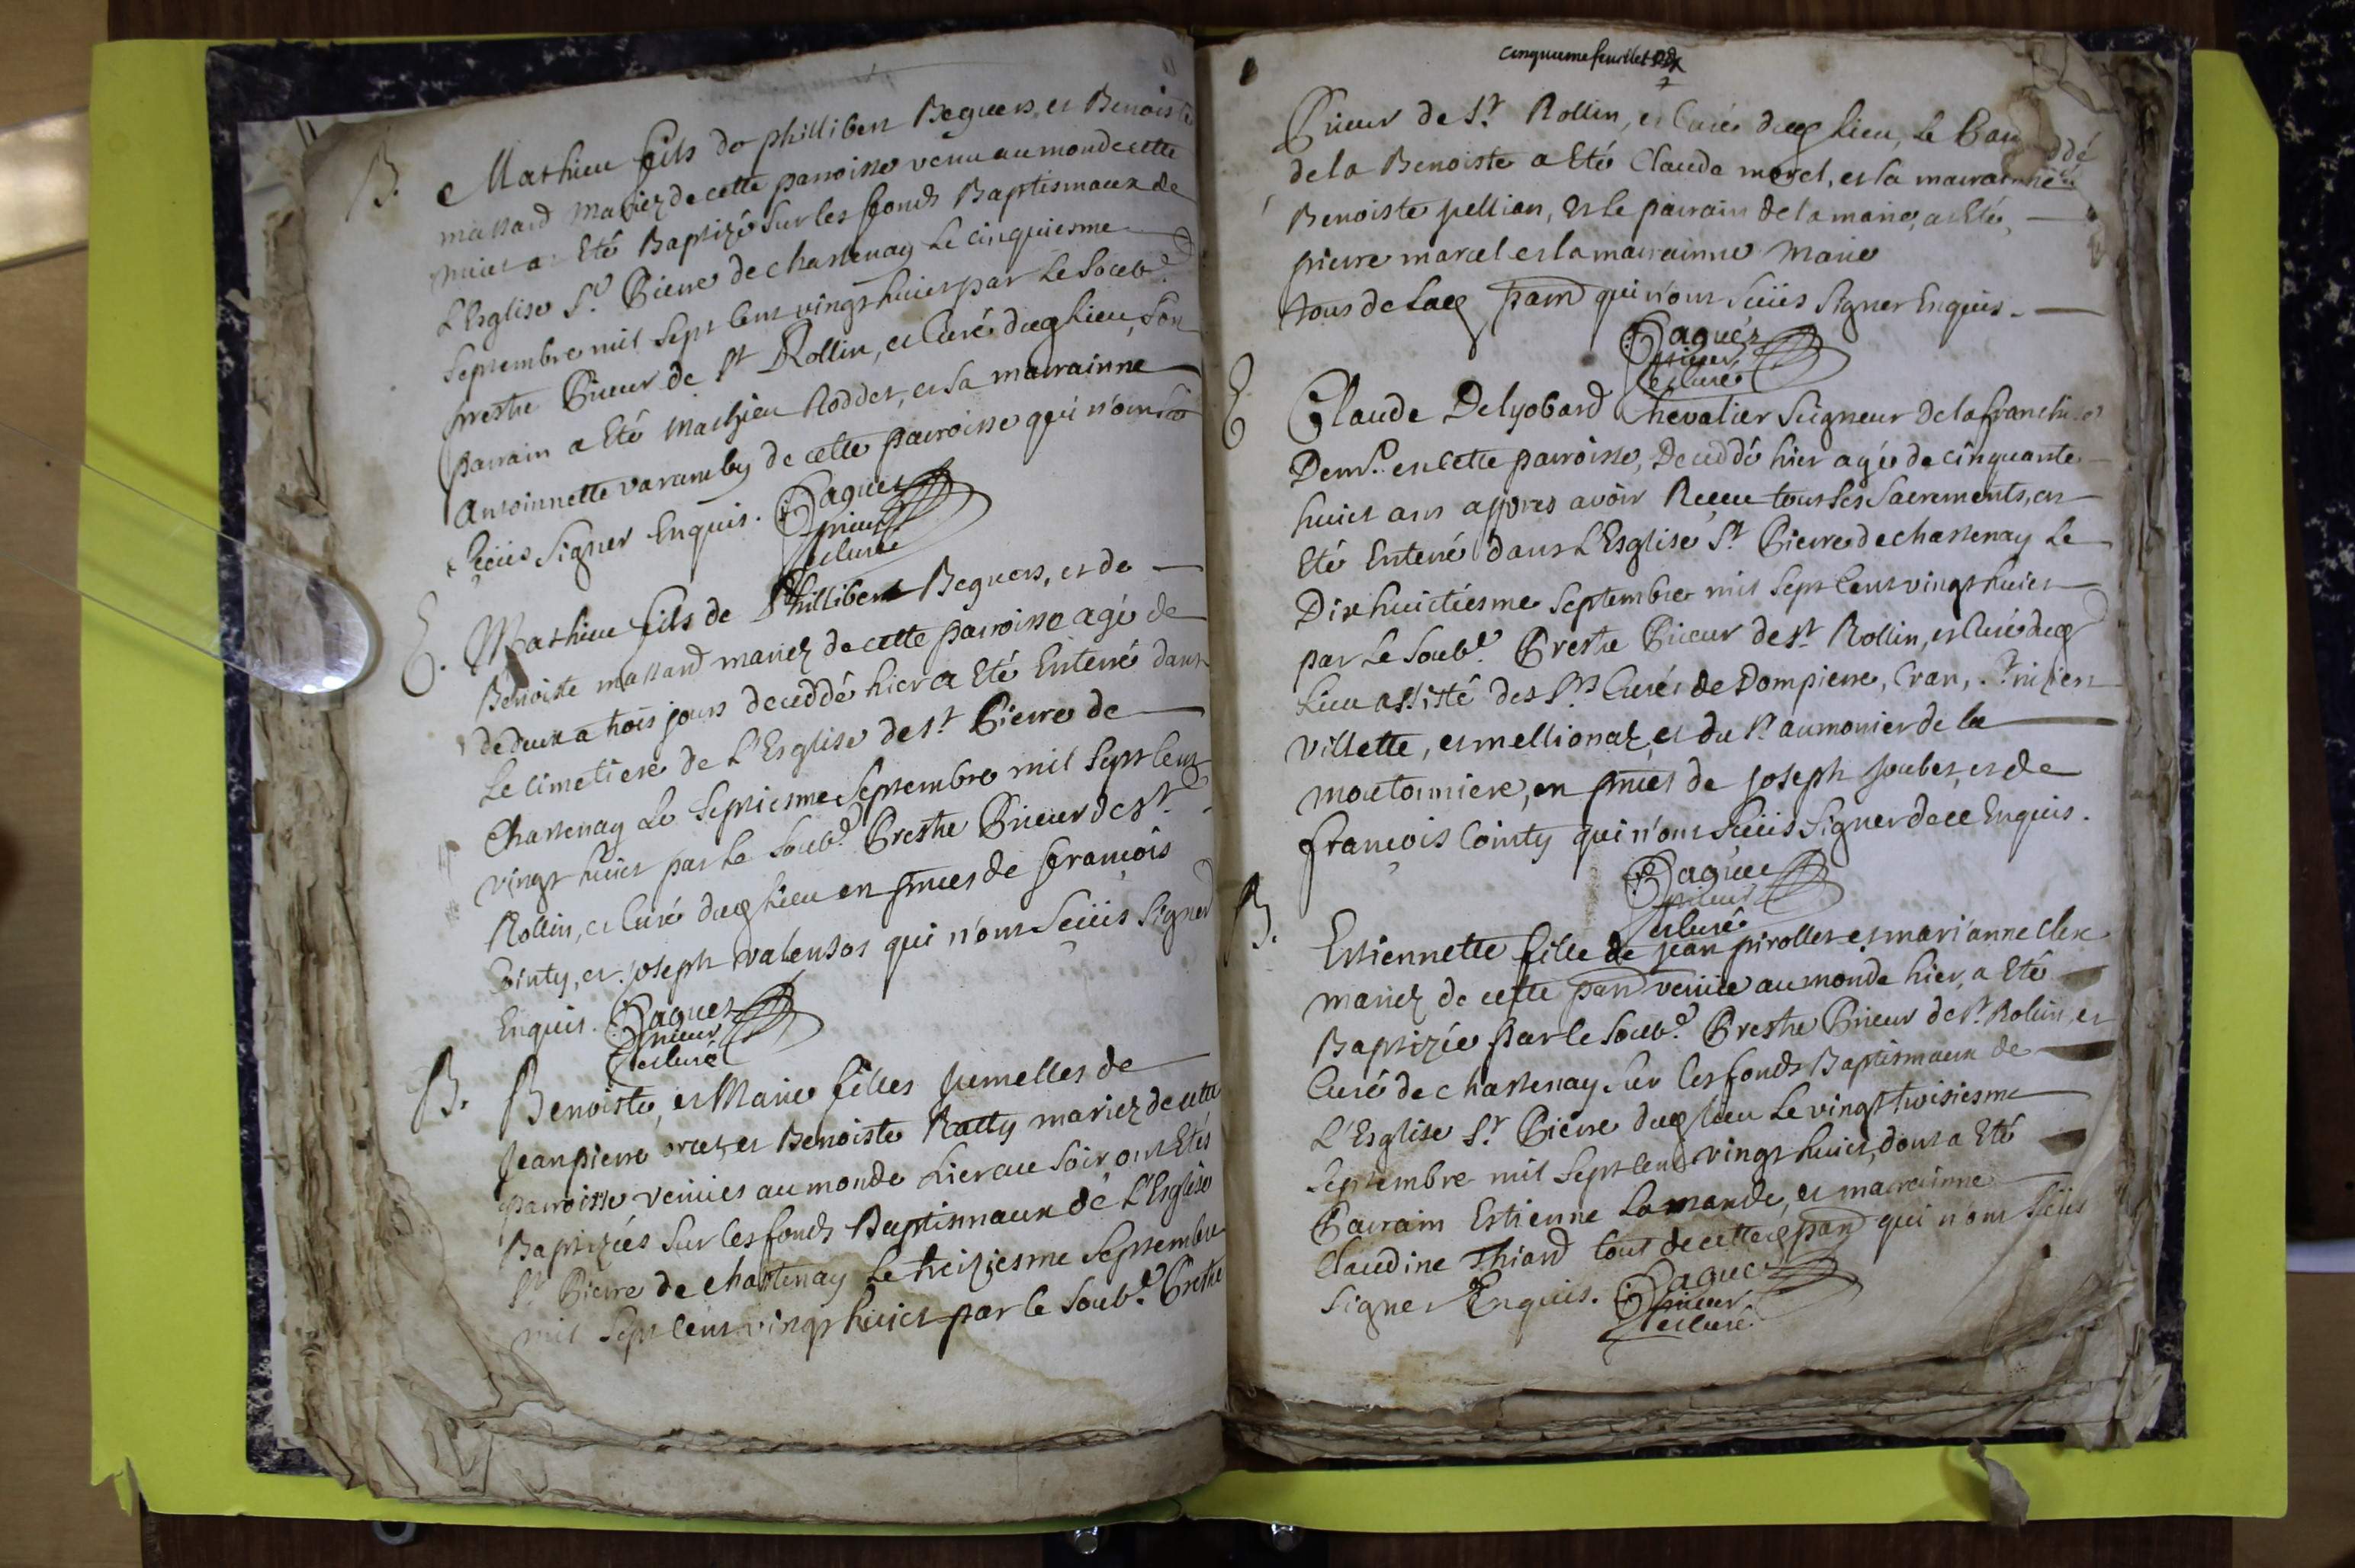 B. Mathieu fils de philliber Beguers, et Benoiste
mallard mariez de cette parroisse venu au monde cette
nuict a Eté Baptizé sur les fonds Baptismaux de
L'Esglise St. Pierre de chastenay Le cinquiesme
Septembre mil Sept Cent vingt huict par Le Soubd.
prestre Prieur de St Rollin, et Curé dug. Lieu, Son
parrain a Eté Mathieu Roddet, et Sa marrainne
Antoinnette varamby de cette parroisse qui n'ont
Sceüs Signer Enquis. Paguer
prieur
et Curé
E. Mathieu fils de Philliber Beguers, et de
Benoiste mallard mariez de cette parroisse agé de
de deux a trois jours deceddé hier a Eté Enterré dans
Le Cimetiere de L'Esglise de St Pierre de
Chastenay Le Septiesme Septembre mil Sept Cent
vingt huict par Le Soubd. Prestre Prieur de St
Rollin, et Curé dug Lieu en pnces de francois
Cointy, et joseph valensot qui n'ont Sceüs Signer
Enquis. Paguer
prieur
et Curé
B. Benoiste, et Marie filles jumelles de
Jean pierre et Benoiste Ratty mariez de cette
parroisse venües au monde hier au Soir ont Etés
Baptizées Sur les fonds Baptismaux de L'Esglise
St Pierre de chastenay Le treiziesme Septembre
mil Sept Cent vingt huict par le Soubd. Prestre
cinquieme feuillet
Prieur de St. Rollin, et Curé dug Lieu, Le
de la Benoiste a Eté Claude morel, et la marrainne
Benoiste pellian, et le parrain de la marie, a Eté,
pierre marcel et la marrainne Marie
tous de Lad parr qui n'ont Sceüs Signer Enquis.
Paguer
prieur
et Curé
E Claude Delyobard Chevalier Seigneur de la franchise
Demt. en cette parroisse, Deceddé hier agé de cinquante
huict ans appres avoir Receu tous Ses Sacrements, a
Eté Enterré dans L'Esglise St. Pierre de chastenay Le
Dix huictiesme Septembre mil Sept Cent vingt huict
par Le Soubd. Prestre Prieur de St. Rollin, et Curé dug
Lieu assisté des Srs Curés de Dompierre, Cran,
villette, et mellionaz, et du Sr aumonier de la
moutonniere, en pnces de joseph joubet, et de
francois Cointy qui n'ont Sceüs Signer de ce Enquis.
Paguer
prieur
et Curé
B. Estiennette fille de jean pirollet et mari'anne Clerc
mariez de cette parr venüe au monde hier, a Eté
Baptizée par le Soubd. Prestre Prieur de St. Rollin, et
Curé de chastenay Sur les fonds Baptismaux de
L'Esglise St. Pierre dug Lieu Le vingt troisiesme
Septembre mil Sept Cent vingt huict, dont a Eté
Parrain Estienne Lamande, et marrainne
Claudine Thiard tous de cette parr qui n'ont Sceüs
Signer Enquis. Paguer
prieur
et Curé